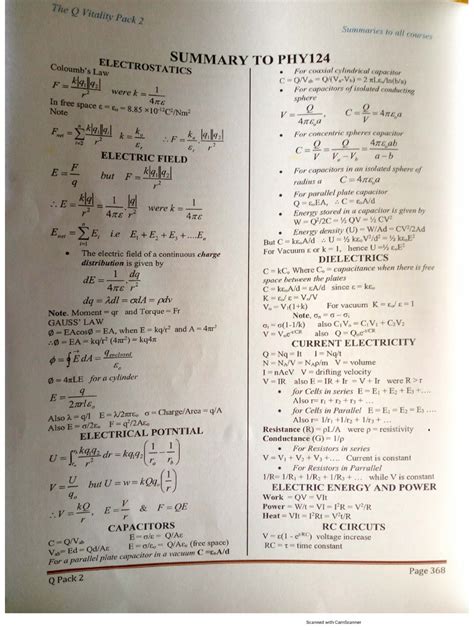 The Q Vitality Pack 2
Summaries to all courses
SUMMARY TO PHY124
ELECTROSTATICS
Coloumb's Law
F = k|q₁||q₂| / r² were k = 1 / 4πε
In free space ε = εₒ = 8.85 ×10⁻¹²C²/Nm²
Note
ELECTRIC FIELD
E = F / q but F = k|q₁||q₂| / r²
∴ E = k|q| / r² = 1 / 4πε |q| / r² were k = 1 / 4πε
i.e E₁ + E₂ + E₃ + ....Eₙ
• The electric field of a continuous charge
distribution is given by
dE = 1 / 4πε dq / r²
dq = λdl = σdA = ρdv
Note. Moment = qr and Torque = Fr
GAUSS' LAW
∅ = EAcosθ = EA, when E = kq/r² and A = 4πr²
∴∅ = EA = kq/r² (4πr²) = kq4π
∅ = 4πLE for a cylinder
E = q / 2πrlεₒ
Also λ = q/l E = λ/2πrεₒ σ = Charge/Area = q/A
ELECTRICAL POTNTIAL
∴ V = kQ / r, E = V / r & F = QE
CAPACITORS
C = Q/Vₐb E = σ/ε = Q/Aε
Vₐb= Ed = Qd/Aε E = σ/εₒ = Q/Aεₒ (free space)
For a parallel plate capacitor in a vacuum C =εₒA/d
• For coaxial cylindrical capacitor
• For capacitors of isolated conducting
sphere
• For concentric spheres capacitor
• For capacitors in an isolated sphere of
radius a C = 4πεₒa
• For parallel plate capacitor
Q = εₒEA, ∴ C = εₒA/d
• Energy stored in a capacitor is given by
W = Q²/2C = ½ QV = ½ CV²
• Energy density (U) = W/Ad = CV²/2Ad
But C = kεₒA/d ∴ U = ½ kεₒV²/d² = ½ kεₒE²
For Vacuum ε or k = 1, hence U = ½ εₒE²
DIELECTRICS
C = kCₒ Where Cₒ = capacitance when there is free
space between the plates
C = kεₒA/d = εA/d since ε = kεₒ
K = εᵣ/ ε = Vₒ/V
Vₒ = V₁(1+k) For vacuum K = εᵣ/ ε = 1
CURRENT ELECTRICITY
Q = Nq = It I = Nq/t
V = volume
I = nAeV V = drifting velocity
V = IR also E = IR + Ir = V + Ir were R > r
• for Cells in series E = E₁ + E₂ + E₃ +....
Also r= r₁ + r₂ + r₃ + ...
• for Cells in Parallel E = E₁ = E₂ = E₃ ....
Also r= 1/r₁ + 1/r₂ + 1/r₃ + ...
Resistance (R) = ρL/A were ρ = resistivity
Conductance (G) = 1/R
• For Resistors in series
V = V₁ + V₂ + V₃ +.... Current is constant
• For Resistors in Parrallel
1/R= 1/R₁ + 1/R₂ + 1/R₃ + ... while V is constant
ELECTRIC ENERGY AND POWER
Work = QV = VIt
Power = W/t = VI = I²R = V²/R
Heat = VIt = I²Rt = V²t/R
RC CIRCUTS
voltage increase
RC = τ = time constant
Q Pack 2
Page 368
Scanned with CamScanner